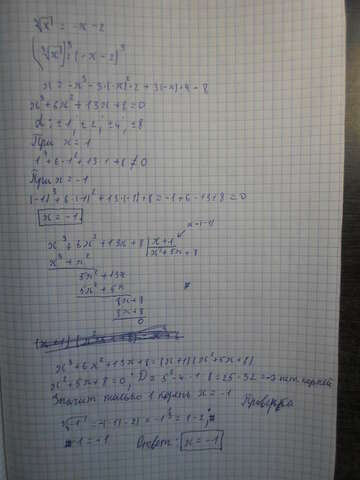 ∛x = -x - 2
(∛x)³ = (-x - 2)³
x = -x³ - 3·(-x)²·2 + 3(-x)·4 - 8
x³ + 6x² + 13x + 8 = 0
±1, ±2, ±4, ±8
При x = 1
1³ + 6·1² + 13·1 + 8 ≠ 0
При x = -1
(-1)³ + 6·(-1)² + 13·(-1) + 8 = -1 + 6 - 13 + 8 = 0
x = -1
x-(-1)
x³ + 6x² + 13x + 8 | x + 1
x³ + x² | x² + 5x + 8
5x² + 13x
5x² + 5x
8x + 8
8x + 8
0
x³ + 6x² + 13x + 8 = (x+1)(x²+5x+8)
x² + 5x + 8 = 0; D = 5² - 4·1·8 = 25 - 32 = -7 нет корней
Значит только 1 корень x = -1
Проверка
∛-1 = -(-1) - 2 = 1 - 2
-1 = -1
Ответ: x = -1